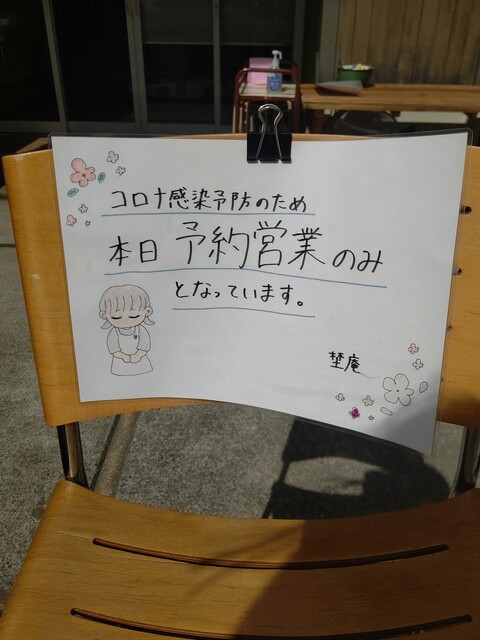 コロナ感染予防のため
本日 予約営業のみ
となっています。
埜庵